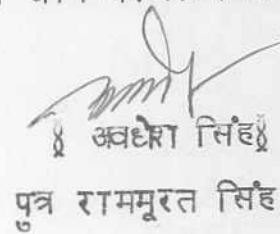 अवधेश सिंह
पुत्र राममूरत सिंह